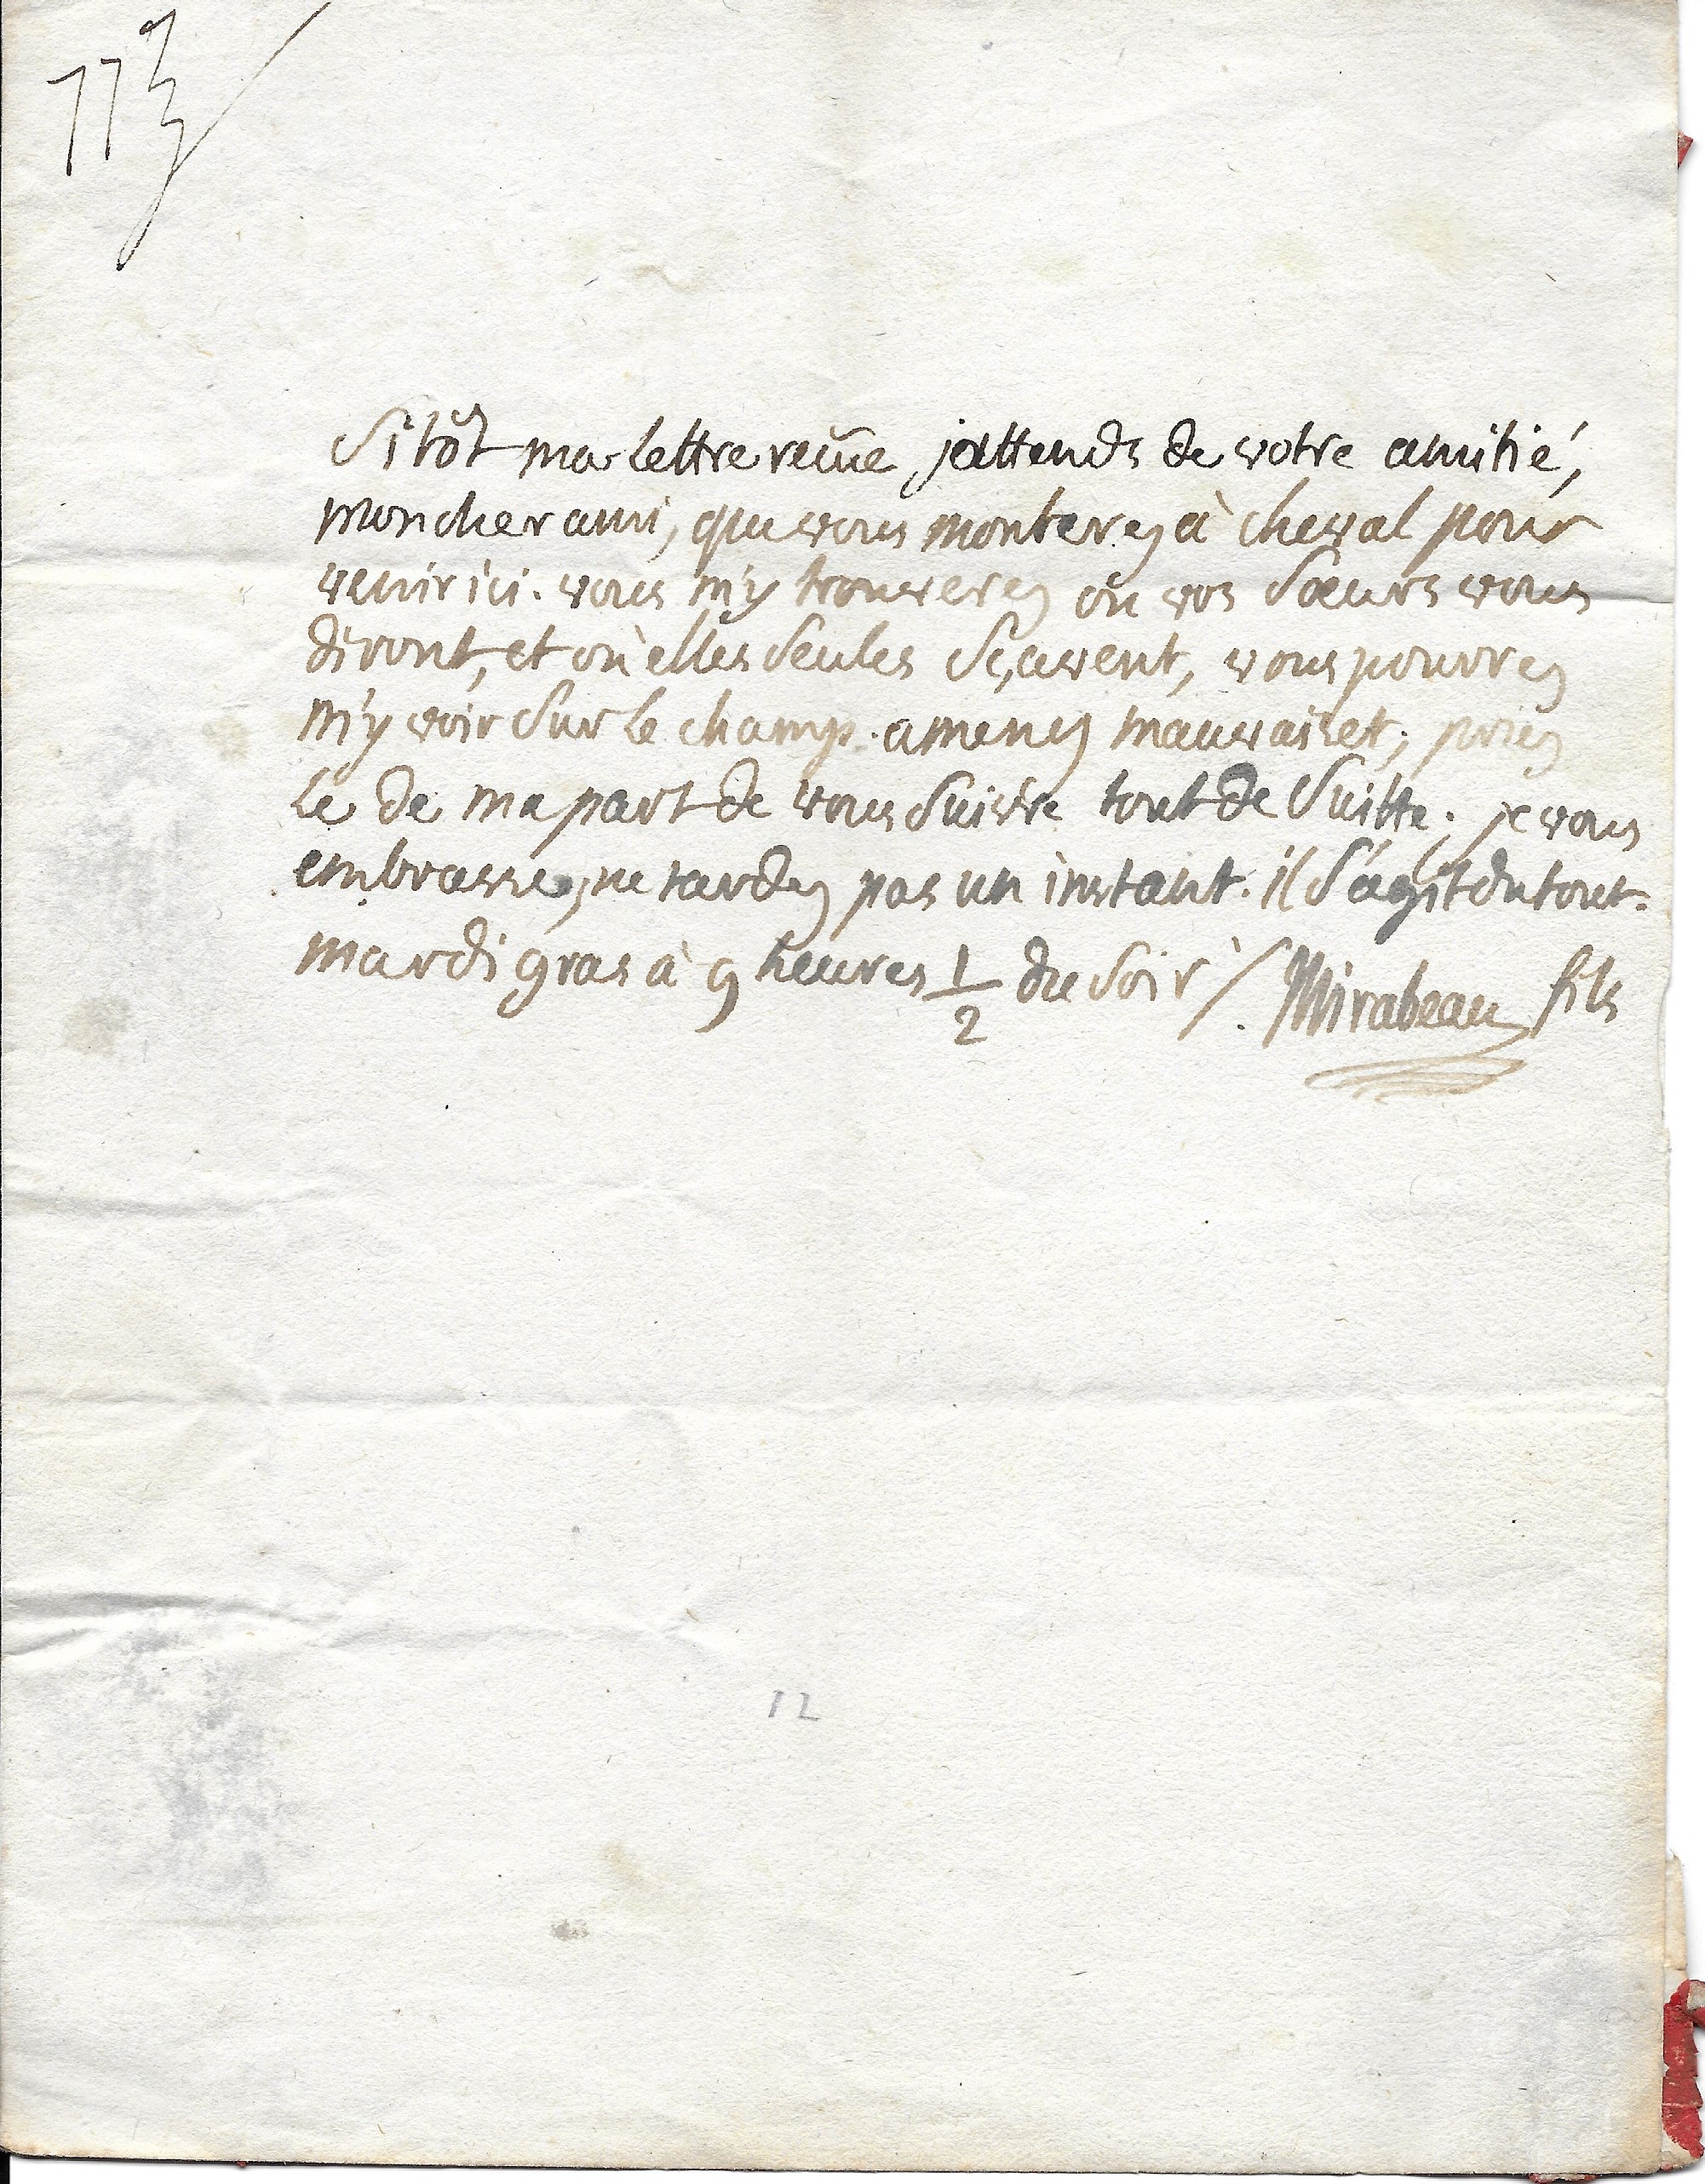 Sitôt ma lettre reçüe, j'attends de votre amitié,
mon cher ami, que vous monterez à cheval pour
venir ici. vous m'y trouverez où vos sœurs vous
diront, et où elles seules sçavent, vous pourrez
m'y voir sur le champ. amenez mauvaiset; priez
le de ma part de vous suivre tout de suitte; je vous
embrasse, ne tardez pas un instant. il s'agit du tout.
mardi gras à 9 heures 1/2 du soir /. Mirabeau fils
12